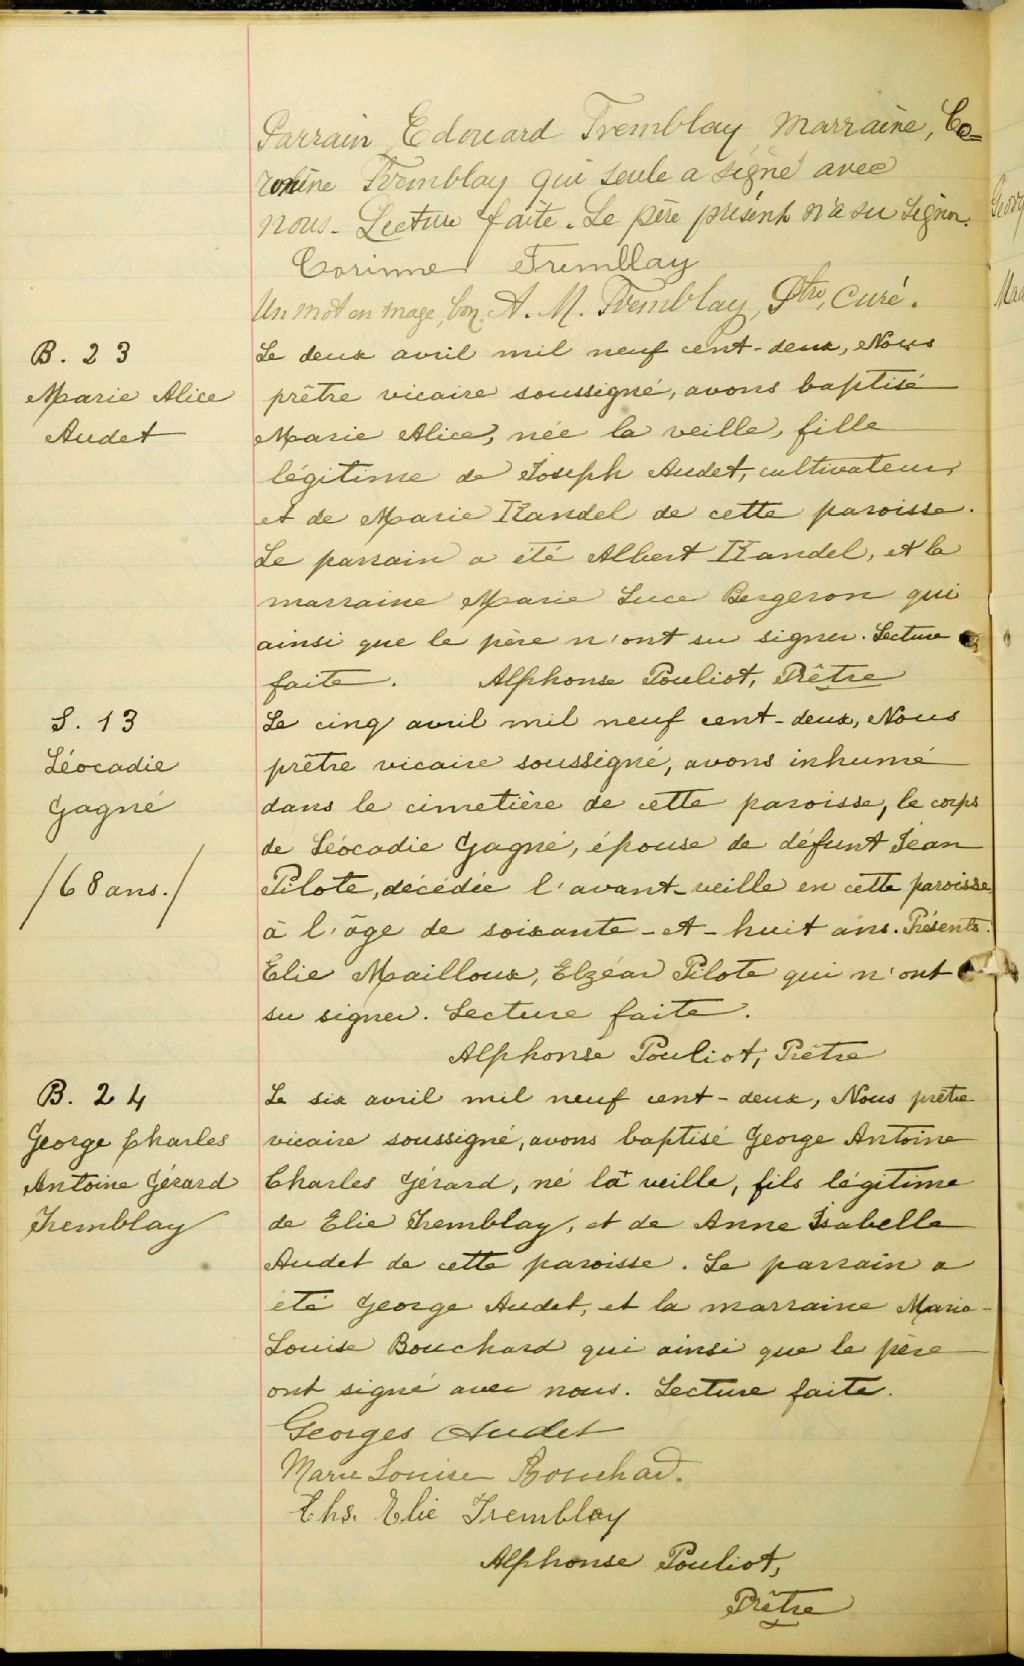 Parrain, Edouard Tremblay, Marraine, Co=
rinne Tremblay qui seule a signé avec
nous. Lecture faite. Le père présent n'a su signer.
Corinne Tremblay
Un mot en marge, bon. A. M. Tremblay, Ptre, Curé.
B. 23
Marie Alice
Audet
Le deux avril mil neuf cent-deux, Nous
prêtre vicaire soussigné, avons baptisé
Marie Alice, née la veille, fille
légitime de Joseph Audet, cultivateur,
et de Marie Kandel de cette paroisse.
Le parrain a été Albert Kandel, et la
marraine Marie Luce Bergeron qui
ainsi que le père n'ont su signer. Lecture
faite. Alphonse Pouliot, Prêtre
S. 13
Léocadie
Gagné
/68 ans./
Le cinq avril mil neuf cent-deux, Nous
prêtre vicaire soussigné, avons inhumé
dans le cimetière de cette paroisse, le corps
de Léocadie Gagné, épouse de défunt Jean
Pilote, décédée l'avant-veille en cette paroisse
à l'âge de soixante-et-huit ans. Présents:
Elie Mailloux, Elzéar Pilote qui n'ont
su signer. Lecture faite.
Alphonse Pouliot, Prêtre
B. 24
George Charles
Antoine Gérard
Tremblay
Le six avril mil neuf cent-deux, Nous prêtre
vicaire soussigné, avons baptisé George Antoine
Charles Gérard, né la veille, fils légitime
de Elie Tremblay, et de Anne Isabelle
Audet de cette paroisse. Le parrain a
été George Audet, et la marraine Marie-
Louise Bouchard qui ainsi que le père
ont signé avec nous. Lecture faite.
Georges Audet
Marie Louise Bouchard.
Chs. Elie Tremblay
Alphonse Pouliot,
Prêtre